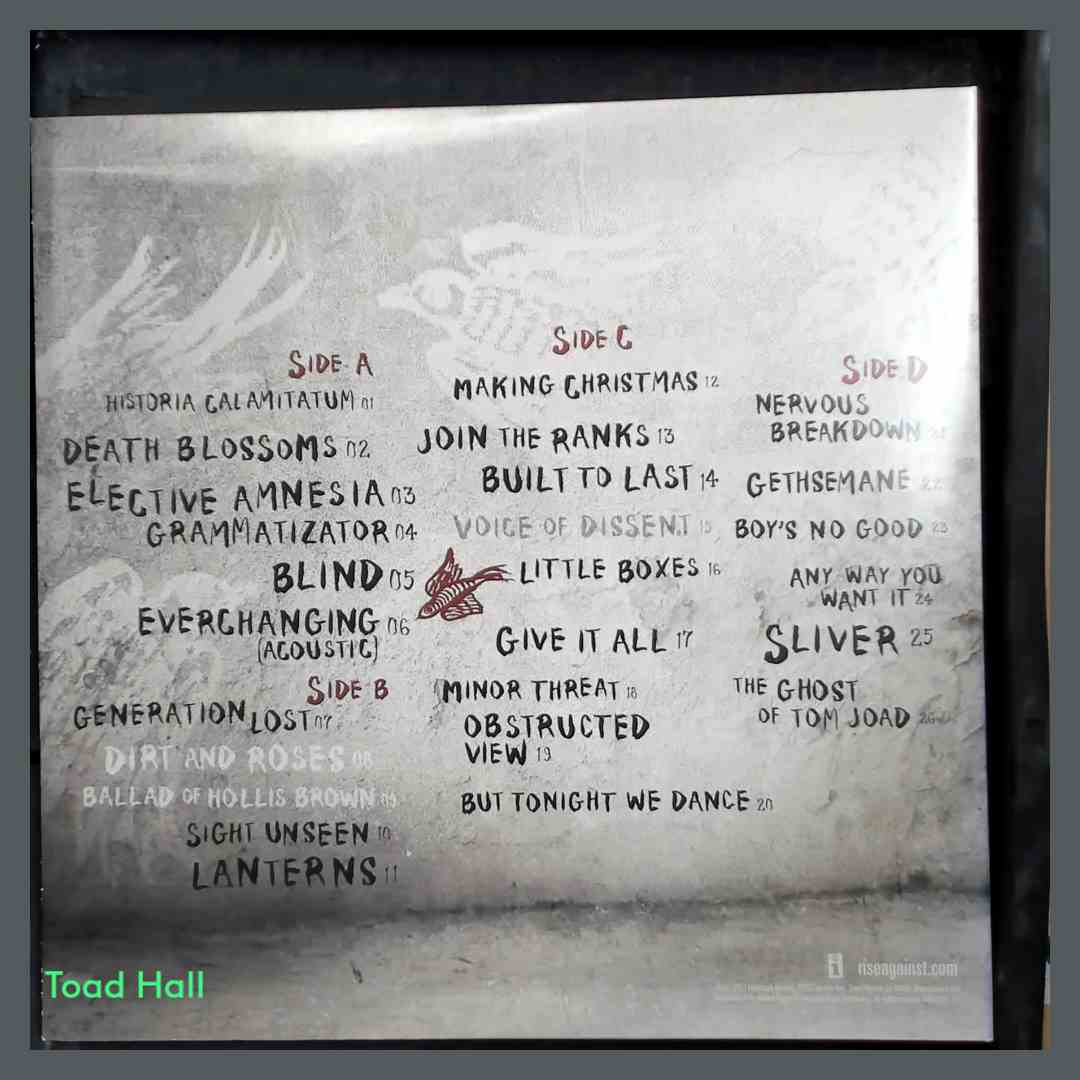 SIDE A
HISTORIA CALAMITATUM 01
DEATH BLOSSOMS 02
ELECTIVE AMNESIA 03
GRAMMATIZATOR 04
BLIND 05
EVERCHANGING 06
(ACOUSTIC)
SIDE B
GENERATION LOST 07
DIRT AND ROSES 08
BALLAD OF HOLLIS BROWN 09
SIGHT UNSEEN 10
LANTERNS 11
SIDE C
MAKING CHRISTMAS 12
JOIN THE RANKS 13
BUILT TO LAST 14
VOICE OF DISSENT 15
LITTLE BOXES 16
GIVE IT ALL 17
MINOR THREAT 18
OBSTRUCTED
VIEW 19
BUT TONIGHT WE DANCE 20
SIDE D
NERVOUS
BREAKDOWN 21
GETHSEMANE 22
BOY'S NO GOOD 23
ANY WAY YOU
WANT IT 24
SLIVER 25
THE GHOST
OF TOM JOAD 26
riseagainst.com
Toad Hall